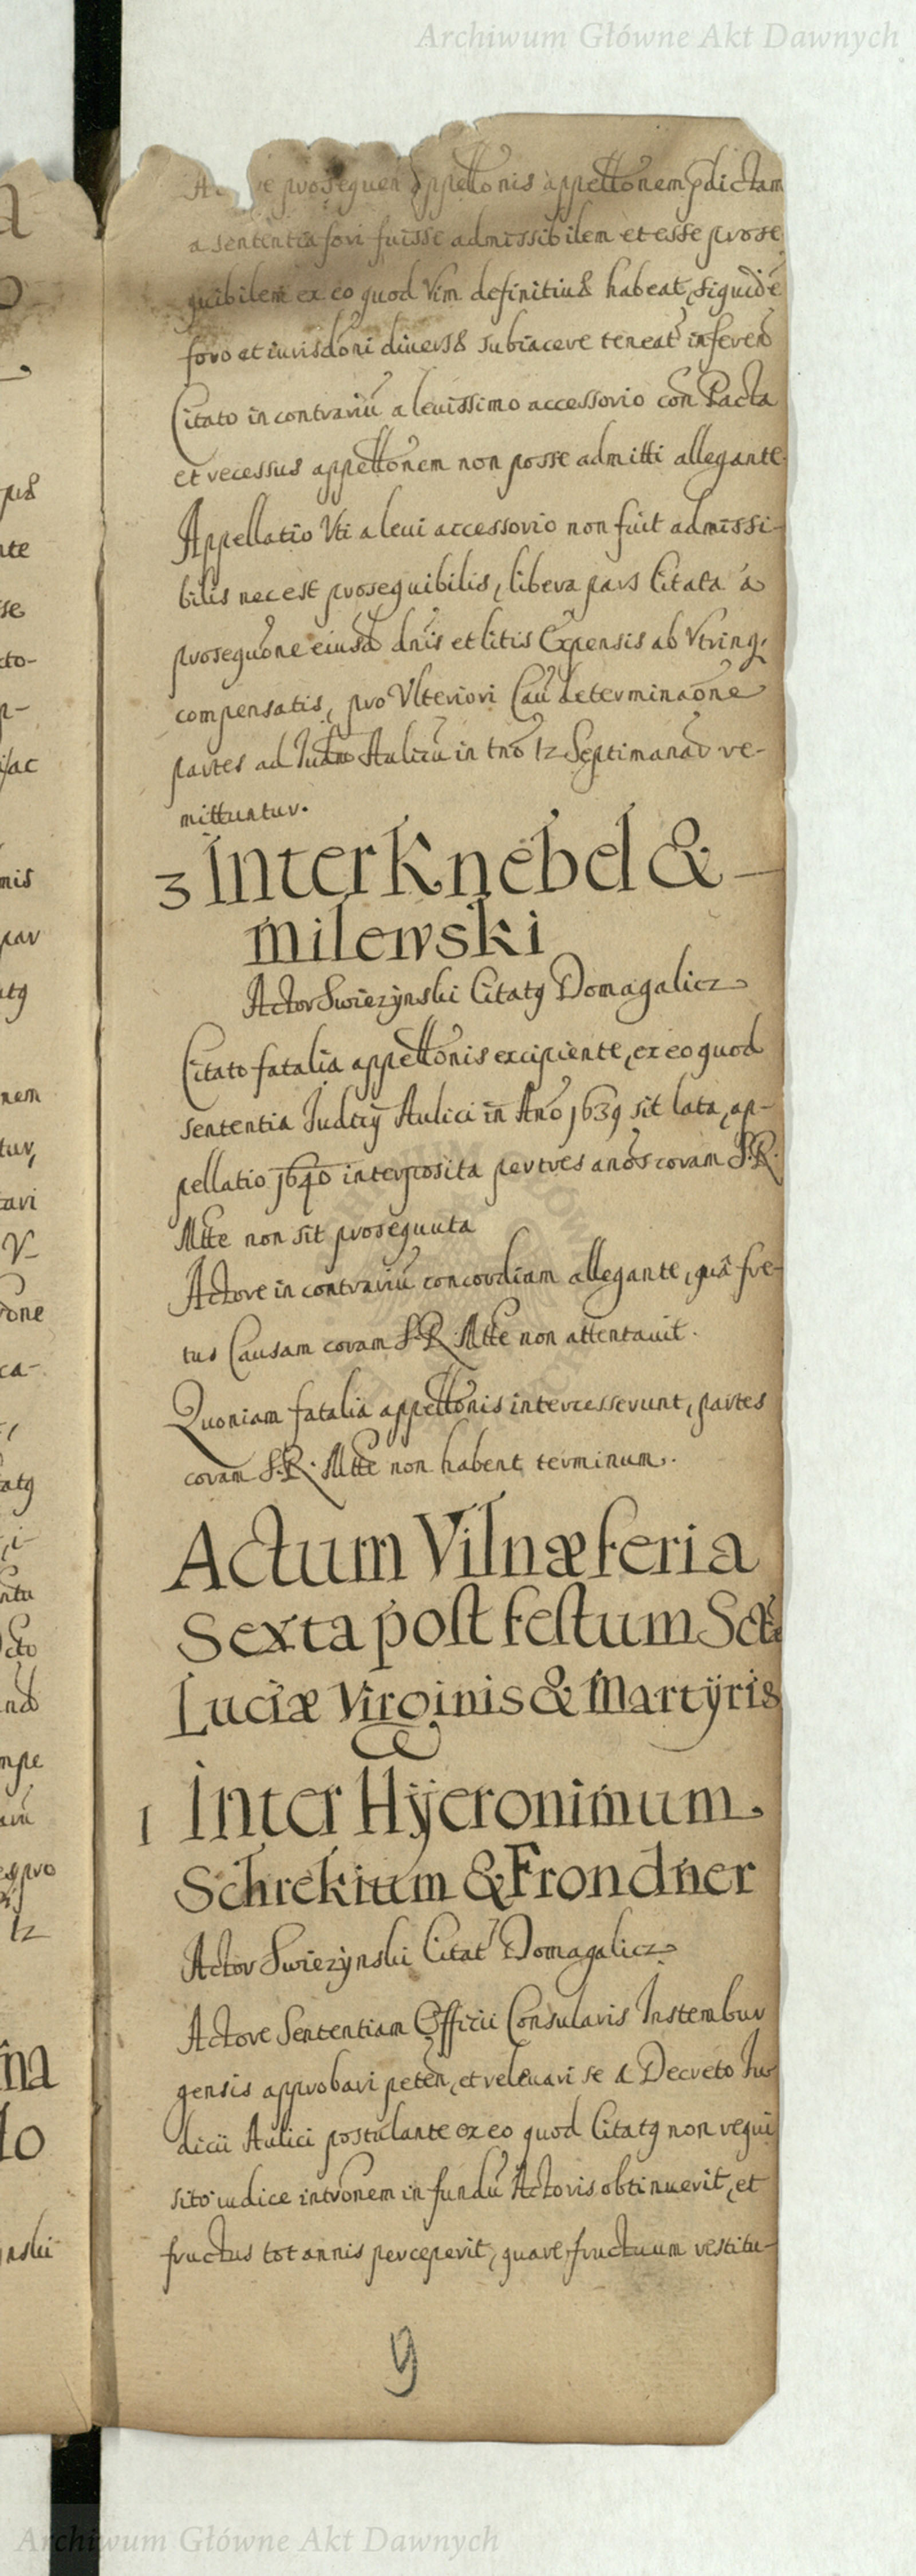 Archiwum Główne Akt Dawnych
prosequen appellonis appellonem pdictam
a sententia fori fuisse admissibilem et esse prose
quibilem ex eo quod Vim definitiuae habeat, siquide
foro et iurisdoni diversae subiacere teneat inferen
Citato in contrariu a leuissimo accessorio con Pacta
et recessus appellonem non posse admitti allegante.
Appellatio Vti a leui accessorio non fuit admissi-
bilis nec est prosequibilis, libera pars Citata a
prosequone eiusd dnis et litis Expensis ab Vtrinq,
compensatis, pro Vlteriori Cau determinaone
partes ad Iudm Aulicu in tno 12 Septimanar re-
mittuntur.
3 Inter Knebel &
Milewski
Actor Swiezynski Citatq Domagalicz
Citato fatalia appellonis excipiente, ex eo quod
sententia Iudicy Aulici in Ano 1639 sit lata, ap-
pellatio 1640 interposita per tres anos coram S.R.
Mtte non sit prosequuta
Actore in contrariu concordiam allegante, qua fre-
tus Causam coram S.R. Mtte non attentauit.
Quoniam fatalia appellonis intercesserunt, partes
coram S.R. Mtte non habent terminum.
Actum Vilnæ feria
Sexta post festum Sctæ
Luciæ Virginis & Martyris
1 Inter Hÿeronimum
Schrekium & Frondner
Actor Swiezynski Citat Domagalicz
Actore Sententiam Officii Consularis Instembur
gensis approbari peten, et releuari se a Decreto Iu
dicii Aulici postulante ex eo quod Citatq non requi
sito iudice intronem in fundu Actoris obtinuerit, et
fructus tot annis perceperit, quare fructuum restitu-
9
Archiwum Główne Akt Dawnych